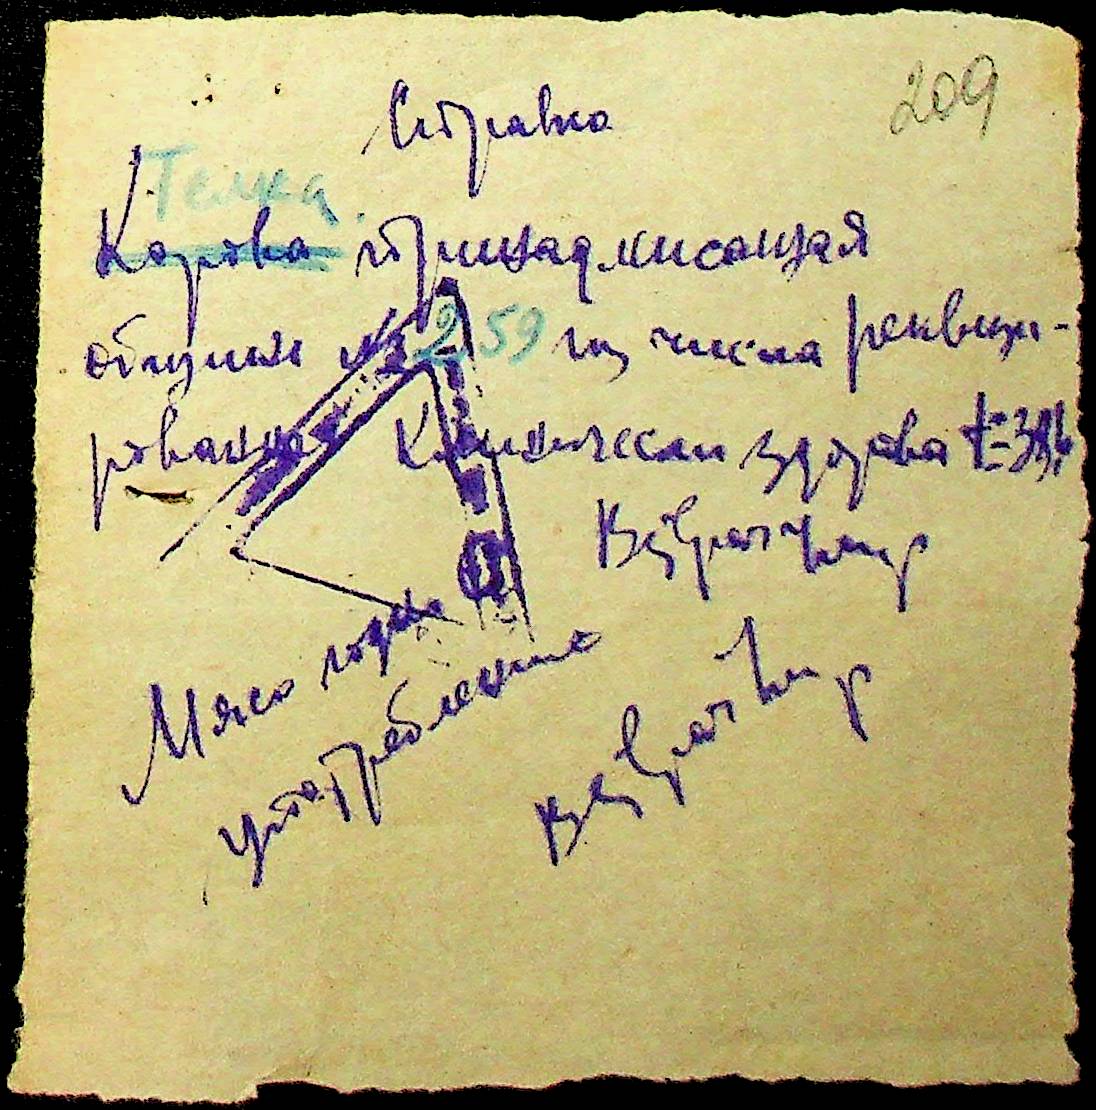 209
Справка
Телка.
Корова принадлежащая
общине № 259 из числа реквизи-
рованных Клинически здорова t=38,6
Ветврач
Мясо годно
употреблению
Ветврач